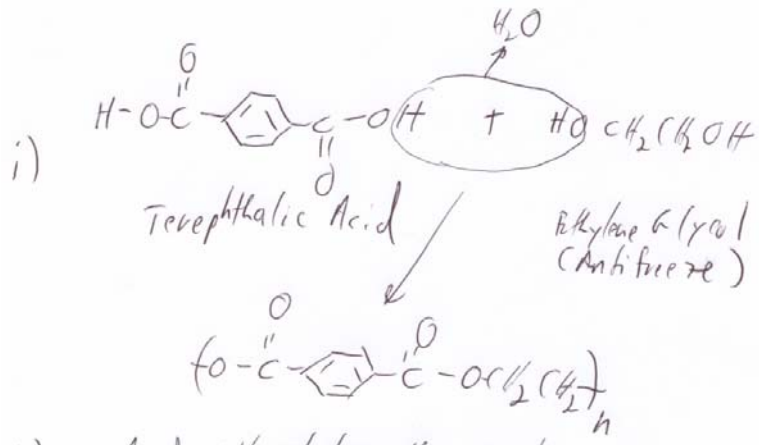 H₂O
O
H-O-C-C-OH + HO CH₂CH₂OH
i)
O
Terephthalic Acid
Ethylene Glycol
(Antifreeze)
O O
(O-C-C-OCH₂CH₂)n